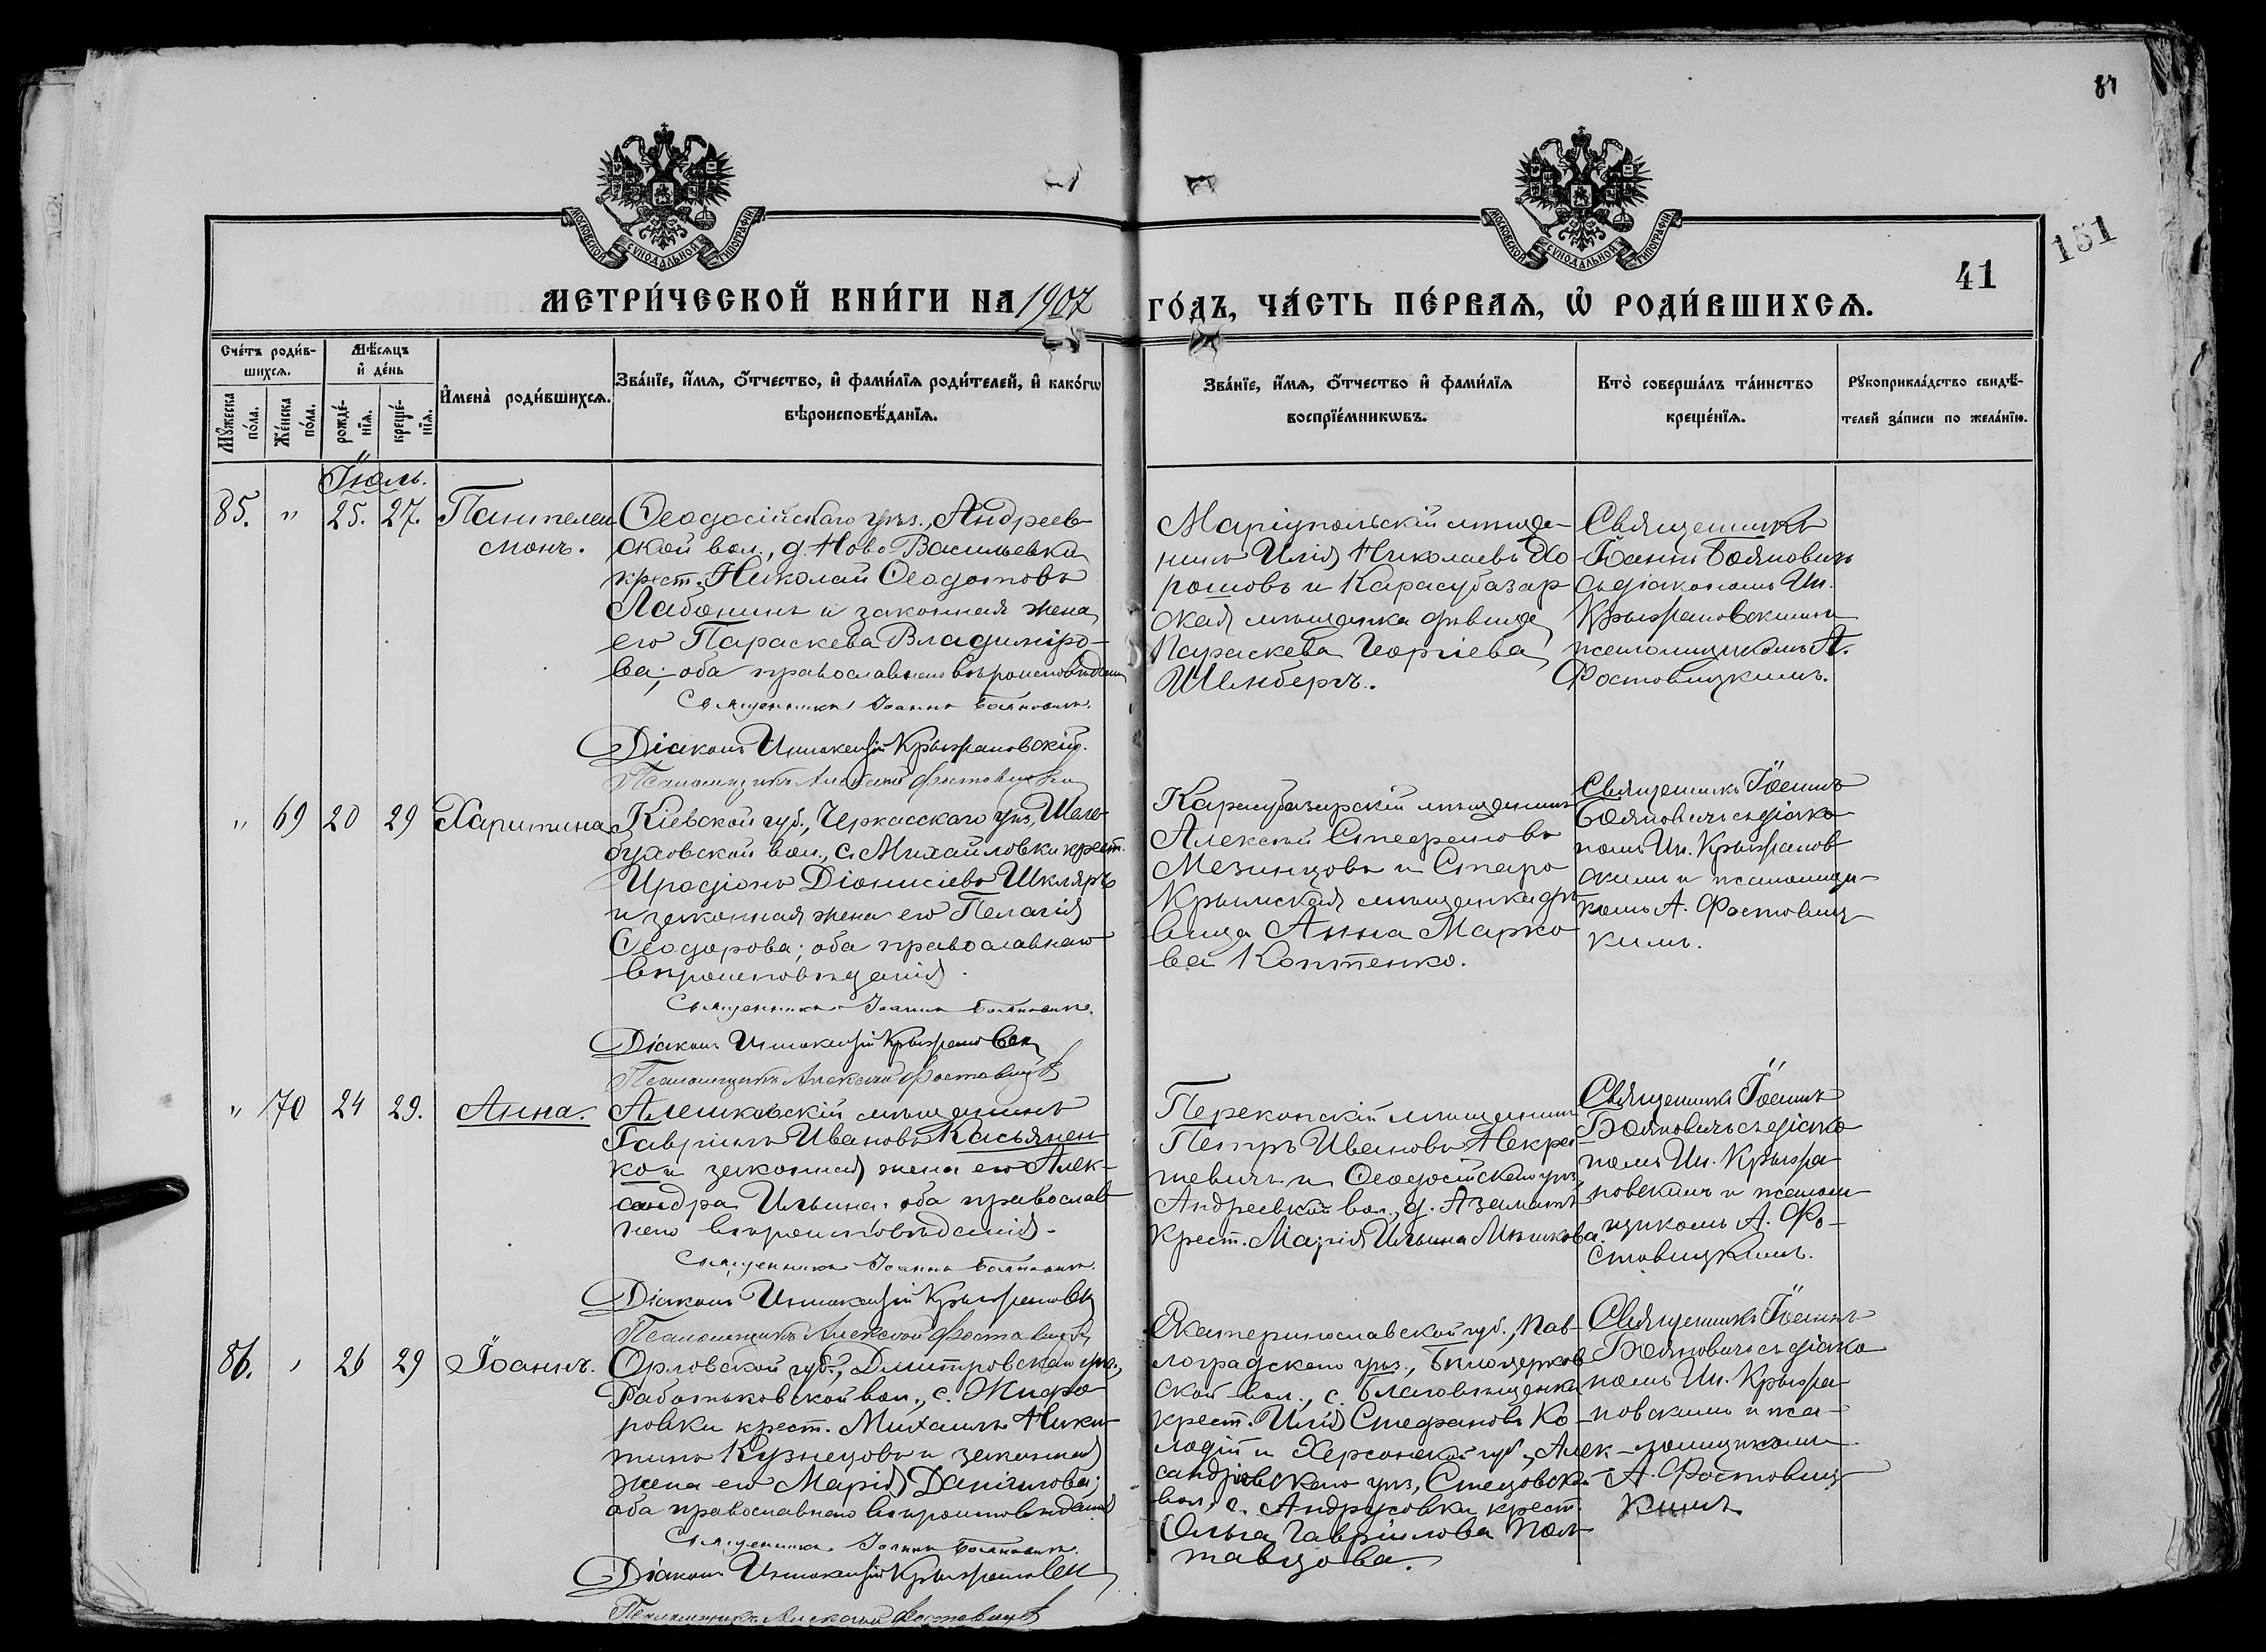 87
151
41
МОСКОВСКОЙ СѴНОДАЛЬНОЙ ТИПОГРАФІИ
МОСКОВСКОЙ СѴНОДАЛЬНОЙ ТИПОГРАФІИ
МЕТРИ́ЧЕСКОЙ КНИ́ГИ НА 1907 ГО́ДЪ, ЧА́СТЬ ПЕ́РВАѦ, Ѡ҆ РОДИ́ВШИХСѦ.
Сче́тъ роди́в-
шихсѧ.
Мꙋ́жеска по́ла.
Же́нска по́ла.
Мѣ́сѧцъ
и҆ де́нь
рожде́-
нїѧ.
креще́-
нїѧ.
И҆мена̀ роди́вшихсѧ.
Зва́нїе, и҆́мѧ, ѻ҆́тчество, и҆ фами́лїѧ роди́телей, и҆ како́гѡ
вѣроисповѣ́данїѧ.
Зва́нїе, и҆́мѧ, ѻ҆́тчество и҆ фами́лїѧ
воспрїе́мникѡвъ.
Кто̀ соверша́лъ та́инство
креще́нїѧ.
Рꙋкоприкла́дство свидѣ́-
телей за́писи по жела́нїю.
Іюль.
85. " 25. 27. Пантелеи-
монъ.
Ѳеодосійскаго уѣз., Андреев-
ской вол., д. Ново Васильевка
крест. Николай Ѳеодотовъ
Лабонинъ и законная жена
его Параскева Владиміро-
ва; оба православнаго вѣроисповѣданія
Священникъ Іоаннъ Бояновичъ.
Діаконъ Иннокентій Крыжановскій.
Псаломщикъ Алексѣй Фостовицкій
Маріупольскій мѣща-
нинъ Илія Николаевъ Хо
рошовъ и Карасубазар-
ская мѣщанка дѣвица
Параскева Георгіева
Шенбергъ.
Священникъ
Іоаннъ Бояновичъ
съ діакономъ Ин.
Крыжановскимъ и
псаломщикомъ А.
Фостовицкимъ.
" 69 20 29 Харитина
Кіевской губ., Черкасскаго уѣз.,
вол., с. Михайловки крест.
Иродіонъ Діонисіевъ Шкляръ
и законная жена его Пелагія
Ѳеодорова; оба православнаго
вѣроисповѣданія.
Священникъ Іоаннъ Бояновичъ.
Діаконъ Иннокентій Крыжановскій
Псаломщикъ Алексѣй Фостовицкій
Карасубазарскій мѣщанинъ
Алексѣй Стефановъ
Мезинцовъ и Старо
Крымская мѣщанка дѣ
вица Анна Марко
ва Коптенко.
Священникъ Іоаннъ
Бояновичъ съ діако
номъ Ин. Крыжанов
скимъ и псаломщи-
комъ А. Фостовиц-
кимъ.
" 70 24 29. Анна.
Алешковскій мѣщанинъ
Гавріилъ Ивановъ Касьянен-
ко и законная жена его Алек-
сандра Ильина; оба православ-
наго вѣроисповѣданія.
Священникъ Іоаннъ Бояновичъ.
Діаконъ Иннокентій Крыжановскій
Псаломщикъ Алексѣй Фостовицкій
Перекопскій мѣщанинъ
Петръ Ивановъ Некра
шевичъ и Ѳеодосійскаго уѣз.,
Андреевской вол., д. Азаматъ
крест. Марія Ильина Мѣшкова.
Священникъ Іоаннъ
Бояновичъ съ діако
номъ Ин. Крыжа-
новскимъ и псалом-
щикомъ А. Фо-
стовицкимъ.
86. " 26 29 Іоаннъ.
Орловской губ., Дмитровскаго уѣз.,
Работьковской вол., с. Жидро
ровки крест. Михаилъ Ники-
тинъ Кузнецовъ и законная
жена его Марія Даніилова;
оба православнаго вѣроисповѣданія
Священникъ Іоаннъ Бояновичъ.
Діаконъ Иннокентій Крыжановскій
Псаломщикъ Алексѣй Фостовицкій
Екатеринославской губ., Пав-
лоградскаго уѣз., Бѣлоцерков
ской вол., с. Благовѣщенки
крест. Илія Стефановъ Ко-
лодій и Херсонской губ., Алек-
сандрійскаго уѣз., Стецовской
вол., с. Андрусовки крест.
Ольга Гавріилова Пол-
тавцова.
Священникъ Іоаннъ
Бояновичъ съ діако
номъ Ин. Крыжа-
новскимъ и пса-
ломщикомъ
А. Фостовиц-
кимъ